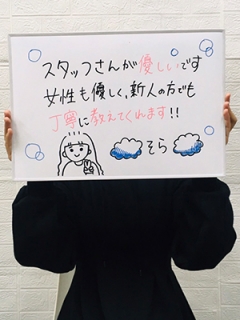 スタッフさんが優しいです
女性も優しく、新人の方でも
丁寧に教えてくれます!!
そら